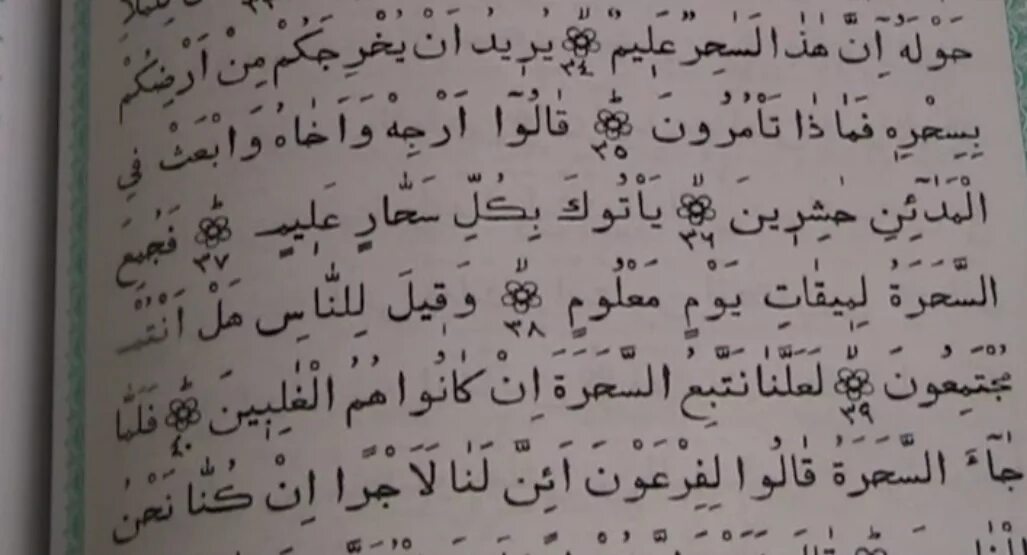 حَوْلَهٗٓ اِنَّ هٰذَا لَسٰحِرٌ عَلِيمٌ ﴿٣٤﴾ يُرِيدُ اَنْ يُخْرِجَكُمْ مِنْ اَرْضِكُمْ
بِسِحْرِهٖ فَمَاذَا تَأْمُرُونَ ﴿٣٥﴾ قَالُوٓا اَرْجِهْ وَاَخَاهُ وَابْعَثْ فِي
الْمَدَٓائِنِ حٰشِرِينَ ﴿٣٦﴾ يَأْتُوكَ بِكُلِّ سَحَّارٍ عَلِيمٍ ﴿٣٧﴾ فَجُمِعَ
السَّحَرَةُ لِمِيقَاتِ يَوْمٍ مَعْلُومٍ ﴿٣٨﴾ وَقِيلَ لِلنَّاسِ هَلْ اَنْتُمْ
مُجْتَمِعُونَ ﴿٣٩﴾ لَعَلَّنَا نَتَّبِعُ السَّحَرَةَ اِنْ كَانُوا هُمُ الْغٰلِبِينَ ﴿٤٠﴾ فَلَمَّا
جَٓاءَ السَّحَرَةُ قَالُوا لِفِرْعَوْنَ اَئِنَّ لَنَا لَاَجْرًا اِنْ كُنَّا نَحْنُ